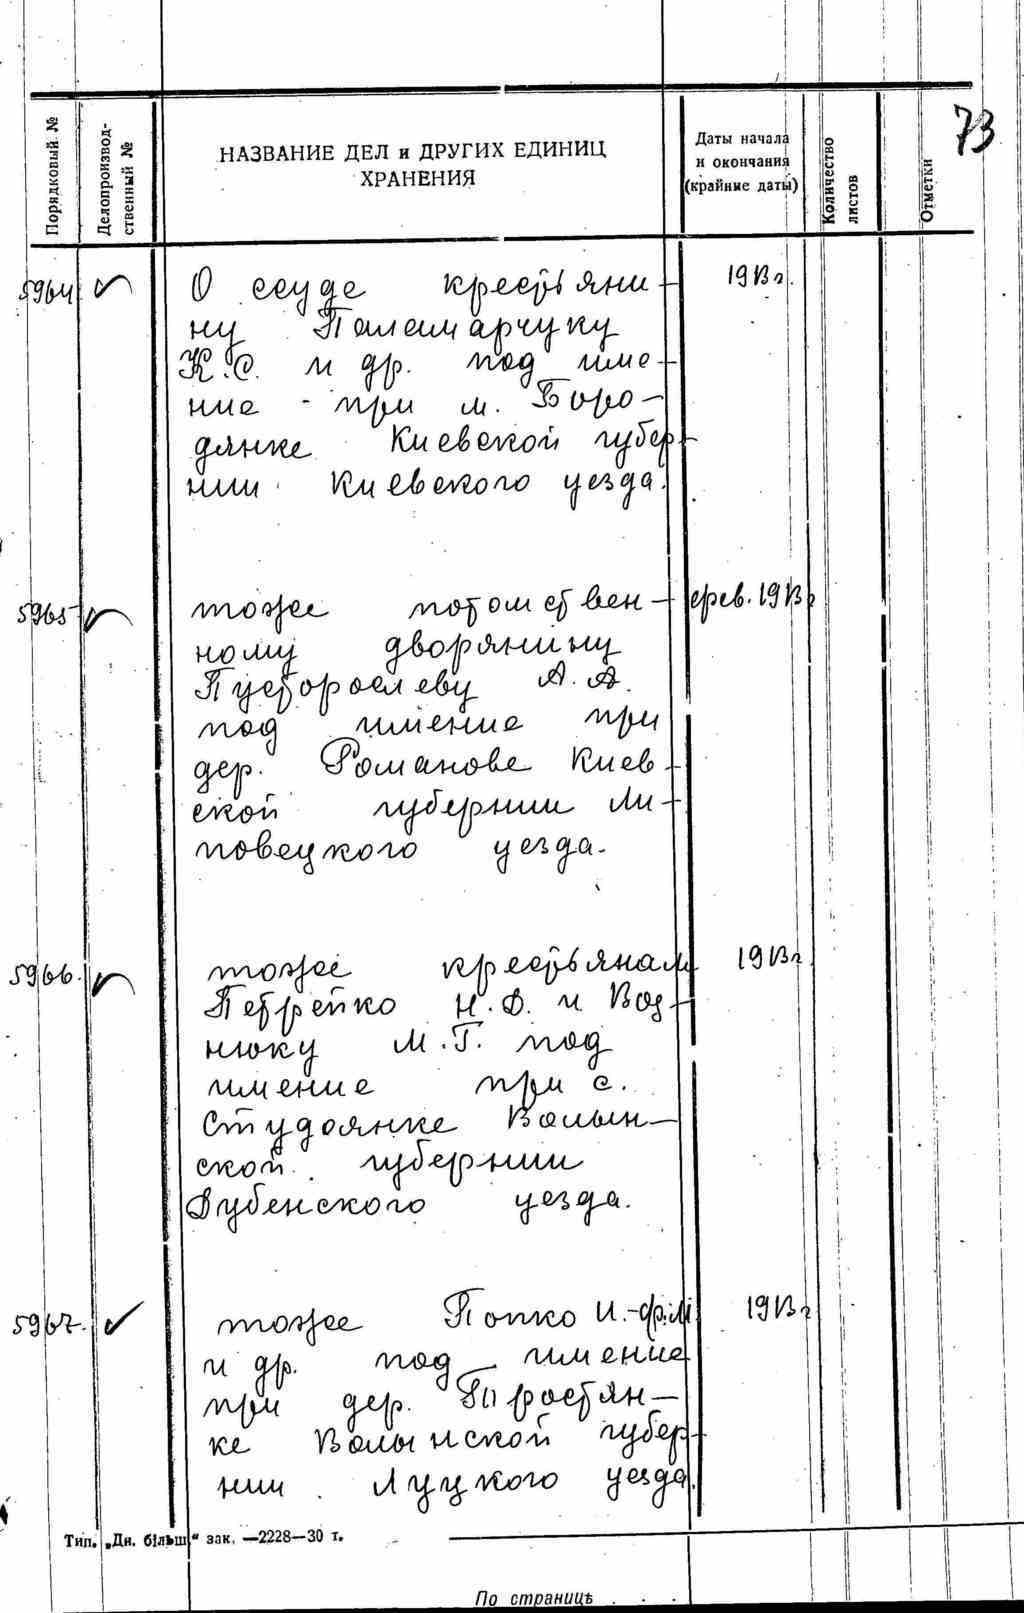 73
Порядковый №
Делопроизвод-
ственный №
НАЗВАНИЕ ДЕЛ и ДРУГИХ ЕДИНИЦ
ХРАНЕНИЯ
Даты начала
и окончания
(крайние даты)
Количество
листов
Отметки
5964 О ссуде крестьяни- 1913 г.
ну Паламарчуку
К.С. и др. под име-
ние при м. Боро-
дянке Киевской губер-
нии Киевского уезда.
5965 тоже потомствен- фев. 1913 г
ному дворянину
Пусторослеву А.А.
под имение при
дер. Романове Киев-
ской губернии Ли-
повецкого уезда.
5966. тоже крестьянам 1913 г.
Петрейко Н.Ф. и Вод-
нюку М.Г. под
имение при с.
Студянке Волын-
ской губернии
Дубенского уезда.
5967. тоже Попко И.-Ф.М. 1913 г
и др. под имение
при дер. Тростян-
ке Волынской губер-
нии Луцкого уезда.
Тип. „Дн. більш“ зак. —2228—30 т.
По страницѣ . . .